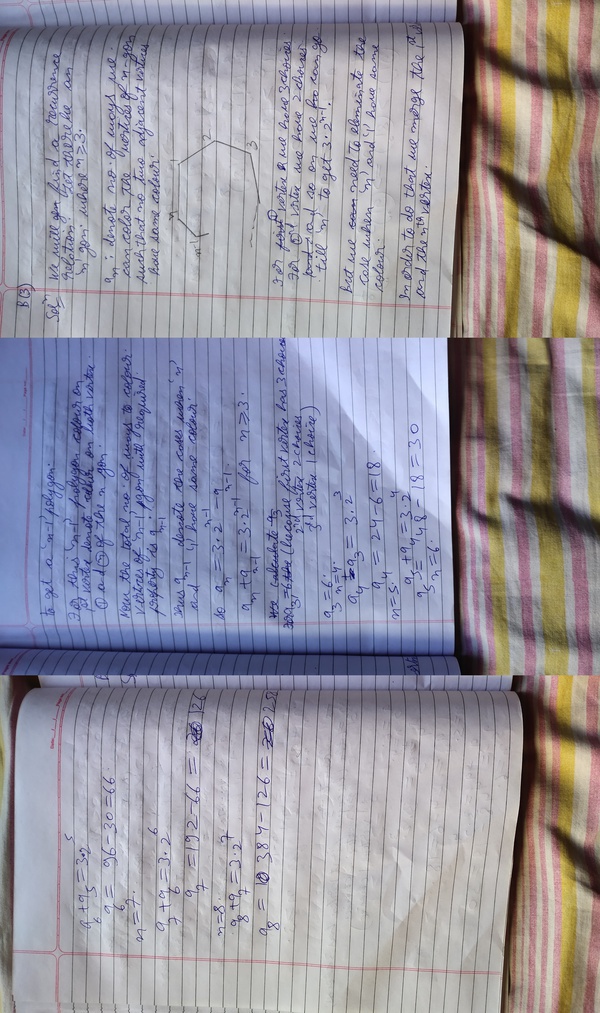 B(3)
Solⁿ We will find a recurrence
relation. Let there be an
'n' gon where n ≥ 3.
aₙ : denote no of ways we
can color the vertices of n-gon
such that no two adjacent vertices
have same colour.
1
2
3
n
n-1
For first vertex we have 3 choices
For 2nd vertex we have 2 choices
and so on we can go
till 'n' to get 3·2ⁿ⁻¹.
But we need to eliminate the
case when 'n' and '1' have same
colour.
In order to do that we merge the 1st
and the nth vertex.
to get a 'n-1' polygon.
For this 'n-1' polygon colour on
vertex denote colour on both vertex
① and ⓝ of the n gon.
Now the total no of ways to colour
vertices of 'n-1' gon with required
property is aₙ₋₁
Thus aₙ₋₁ denote the case when 'n'
and '1' have same colour.
So aₙ = 3·2ⁿ⁻¹ - aₙ₋₁
aₙ + aₙ₋₁ = 3·2ⁿ⁻¹ for n ≥ 3.
We calculate a₃
a₃ = 6 (because first vertex has 3 choices
2nd vertex 2 choices
3rd vertex 1 choice)
a₃ = 6
n = 4.
a₄ + a₃ = 3·2³
a₄ = 24 - 6 = 18.
n = 5.
a₅ + a₄ = 3·2⁴
a₅ = 48 - 18 = 30
n = 6
a₆ + a₅ = 3·2⁵
a₆ = 96 - 30 = 66.
n = 7.
a₇ + a₆ = 3·2⁶
a₇ = 192 - 66 = 126
n = 8.
a₈ + a₇ = 3·2⁷
a₈ = 384 - 126 = 258